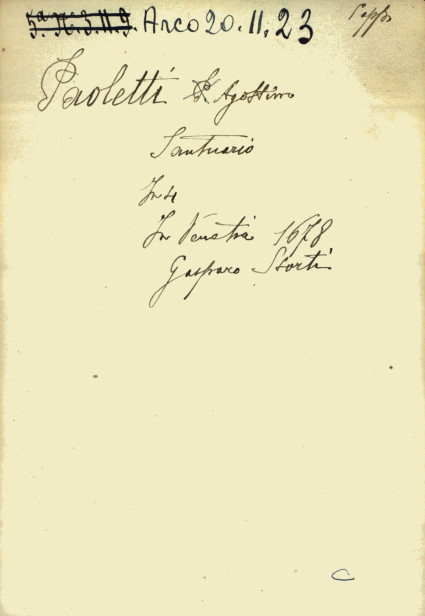 5.ª N. 3. II. 9. Arco 20. II. 23
Paoletti P. Agostino
Santuario
In 4
In Venetia 1678
Gasparo Storti
C